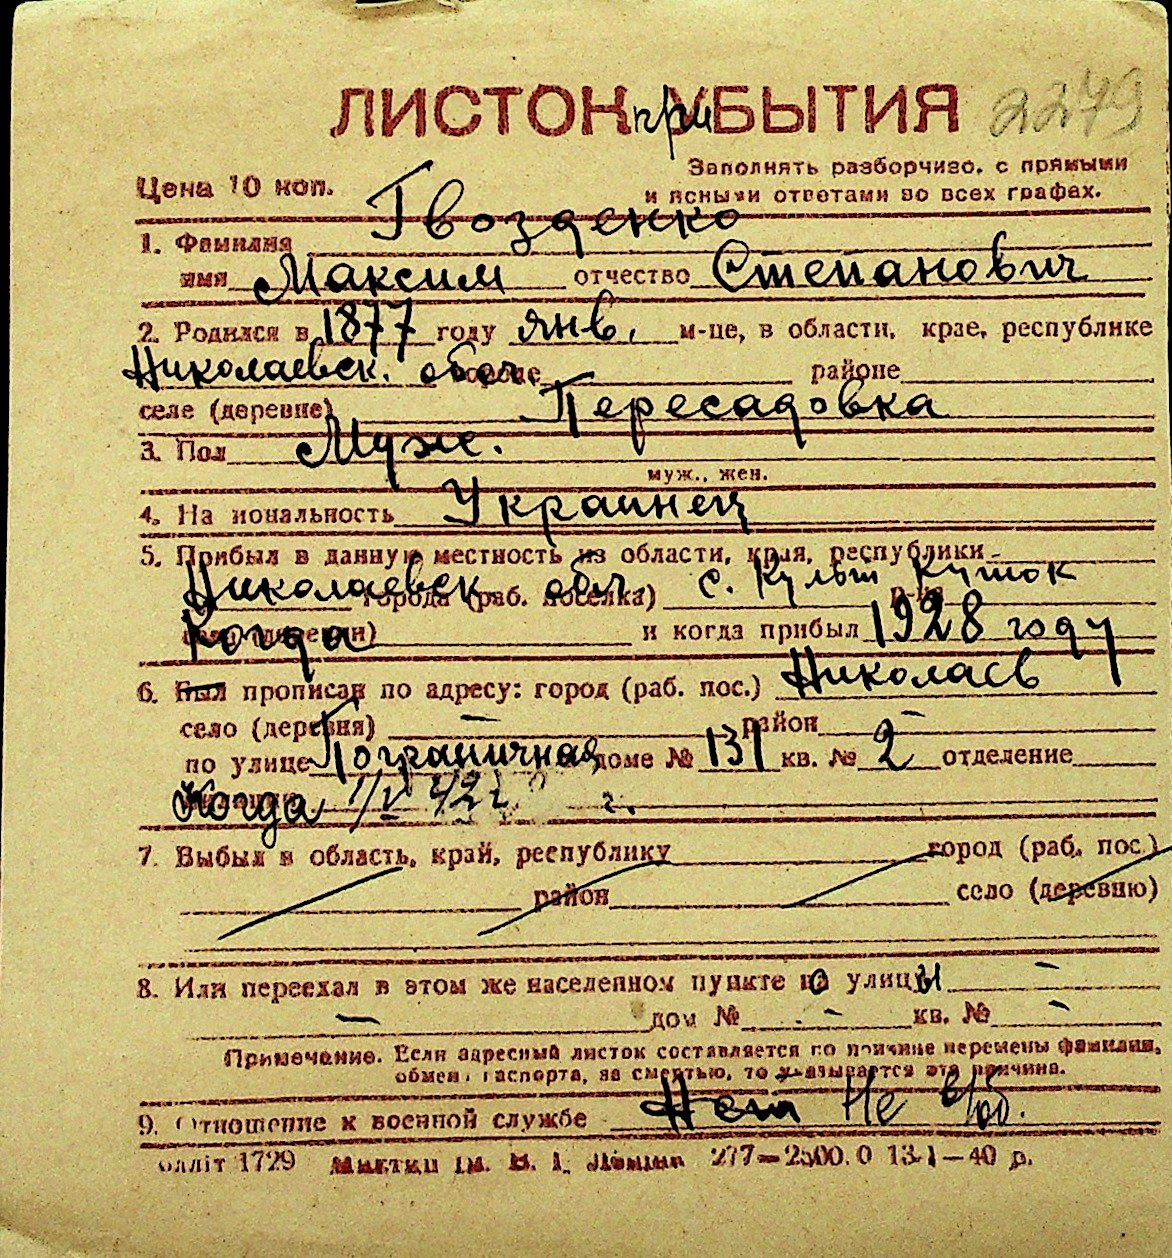 ЛИСТОК при УБЫТИЯ 2279
Цена 10 коп. Заполнять разборчиво, с прямыми
и ясными ответами во всех графах.
1. Фамилия Гвозденко
имя Максим отчество Степанович
2. Родился в 1877 году янв. м-це, в области, крае, республике
Николаевск. обл. районе
селе (деревне) Пересадовка
3. Пол Муж.
муж., жен.
4. На иональность Украинец
5. Прибыл в данную местность из области, края, республики
Николаевск. обл. города (раб. поселка) с. Культ Куток р-на
Когда и когда прибыл 1928 году
6. Был прописан по адресу: город (раб. пос.) Николаев
село (деревня) — район —
по улице Пограничная доме № 131 кв. № 2 отделение
Когда г.
7. Выбыл в область, край, республику город (раб. пос.)
район село (деревню)
8. Или переехал в этом же населенном пункте по улицы —
— дом № - кв. № -
Примечание. Если адресный листок составляется по причине перемены фамилии,
обмена паспорта, за смертью, то указывается эта причина.
9. Отношение к военной службе Нет Не
олліт 1729 277—2500.0 13-1—40 р.